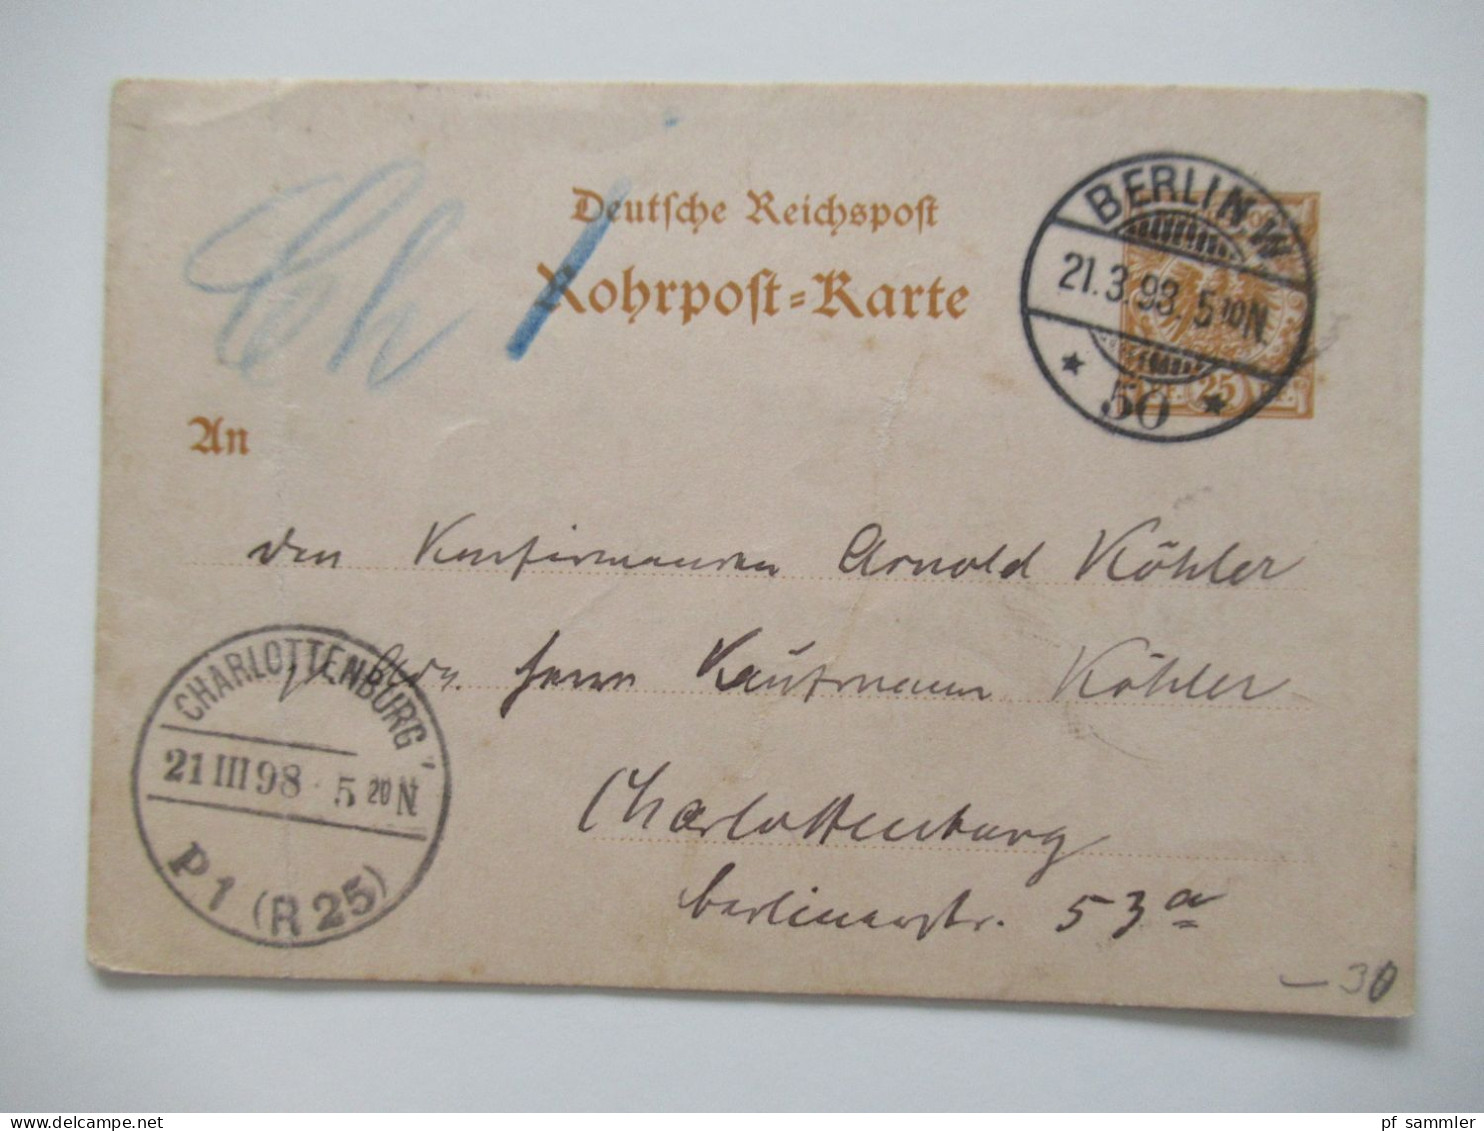 Deutsche Reichspost
Rohrpost=Karte
BERLIN.W
21.3.98. 5 10 N.
* 50 *
25
An
den Konfirmanden Arnold Köhler
Herrn Kaufmann Köhler
Charlottenburg
Berlinerstr. 53a
CHARLOTTENBURG
21 III 98 5 20 N
P 1 (R 25)
-30
pf sammler